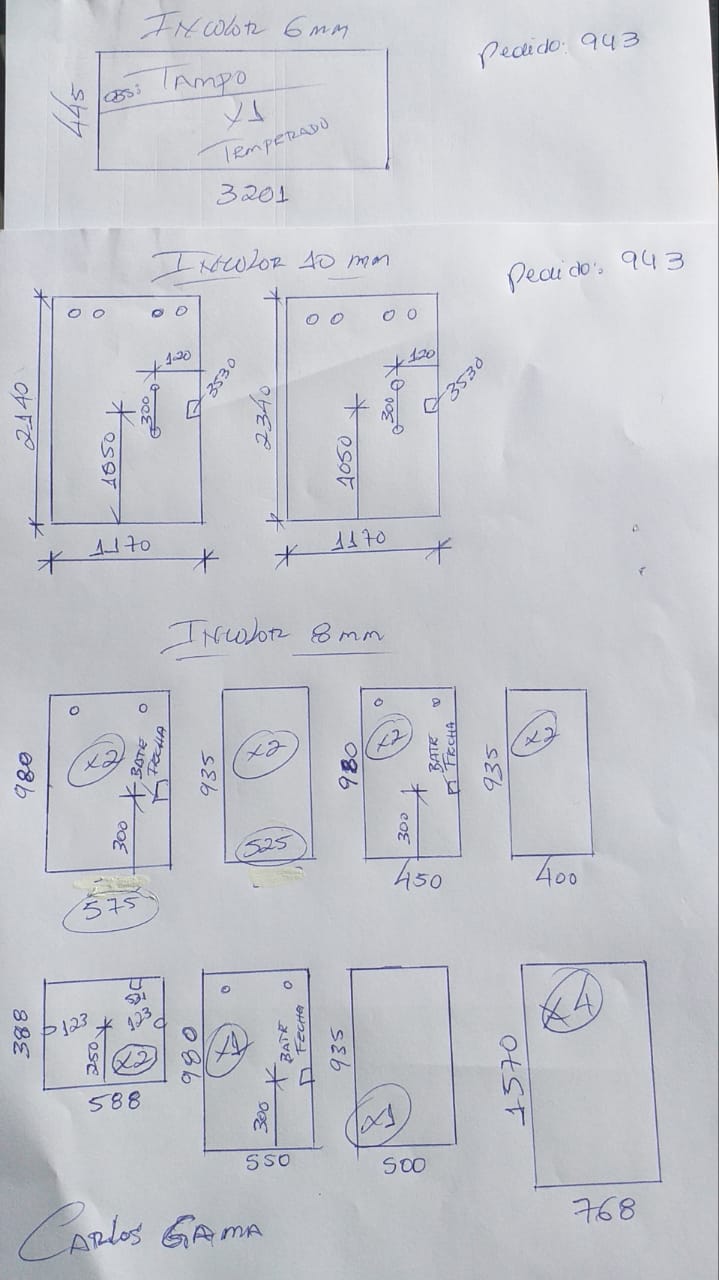 INCOLOR 6mm
Pedido: 943
445
OBS: TAMPO
X1
TEMPERADO
3201
INCOLOR 10 mm
Pedido: 943
2140
120
3530
300
1050
1170
2340
120
3530
300
1050
1170
INCOLOR 8mm
980
X2
BATE
FECHA
300
575
935
X2
525
980
X2
BATE
FECHA
300
450
935
X2
400
388
123
123
250
X2
588
980
X1
BATE
FECHA
300
550
935
X1
500
1570
X4
768
CARLOS GAMA